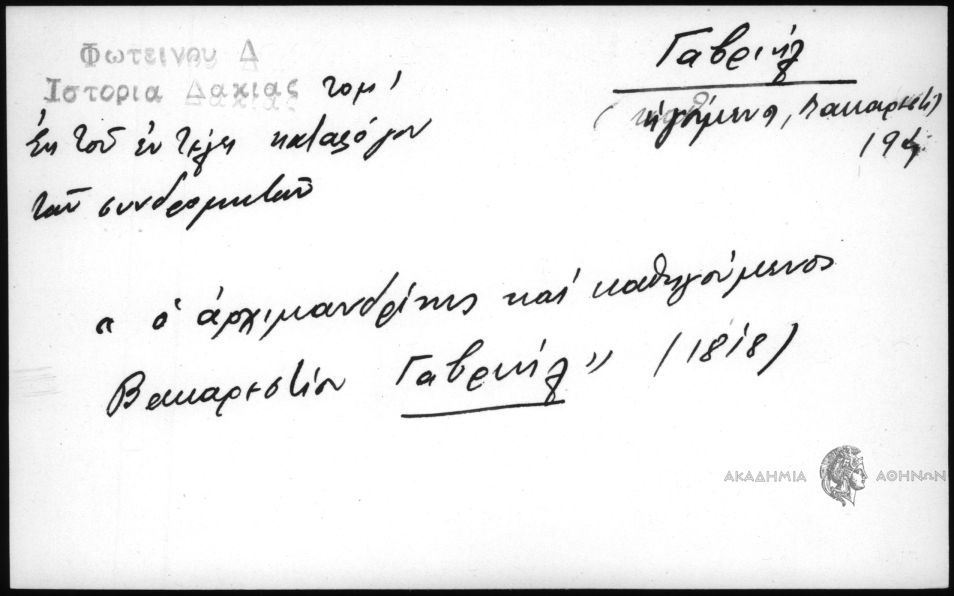 Φωτεινου Δ
Ιστορια Δακιας τομ'
Ἐκ τοῦ ἐν τέλει καταλόγου
τῶν συνδρομητῶν
Γαβριήλ
(ηγούμενος, Βακαρεστι)
19
" ὁ ἀρχιμανδρίτης καὶ καθηγούμενος
Βακαρεστίου Γαβριήλ" (1818)
ΑΚΑΔΗΜΙΑ ΑΘΗΝΩΝ